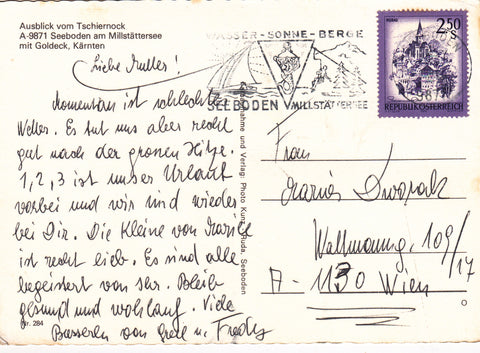 Ausblick vom Tschiernock
A-9871 Seeboden am Millstättersee
mit Goldeck, Kärnten
Liebe Mutter!
Momentan ist schlechtes
Wetter. Es tut uns aber recht
gut nach der großen Hitze.
1, 2, 3 ist unser Urlaub
vorbei und wir sind wieder
bei Dir. Die Kleine von
ist recht lieb. Es sind alle
begeistert von ihr. Bleib
gesund und wohlauf. Viele
Busserln von u. Fredy
Nr. 284
Aufnahme und Verlag: Photo Seeboden
WASSER-SONNE-BERGE
SEEBODEN MILLSTÄTTERSEE
MURAU
2.50
S
REPUBLIK ÖSTERREICH
Frau
Maria Dworak
109/17
A-1130 Wien